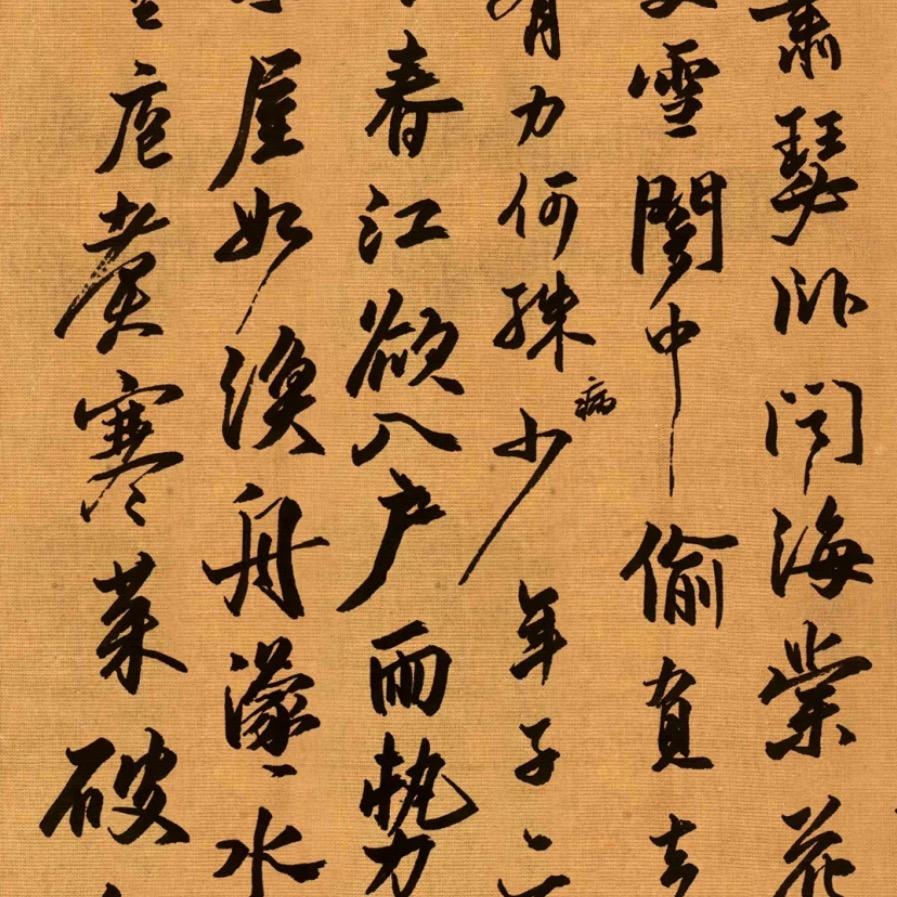 蕭瑟臥聞海棠花
雪闇中偷負去
有力何殊病少年子
春江欲入户雨勢
屋如漁舟濛〻水
庖煮寒菜破